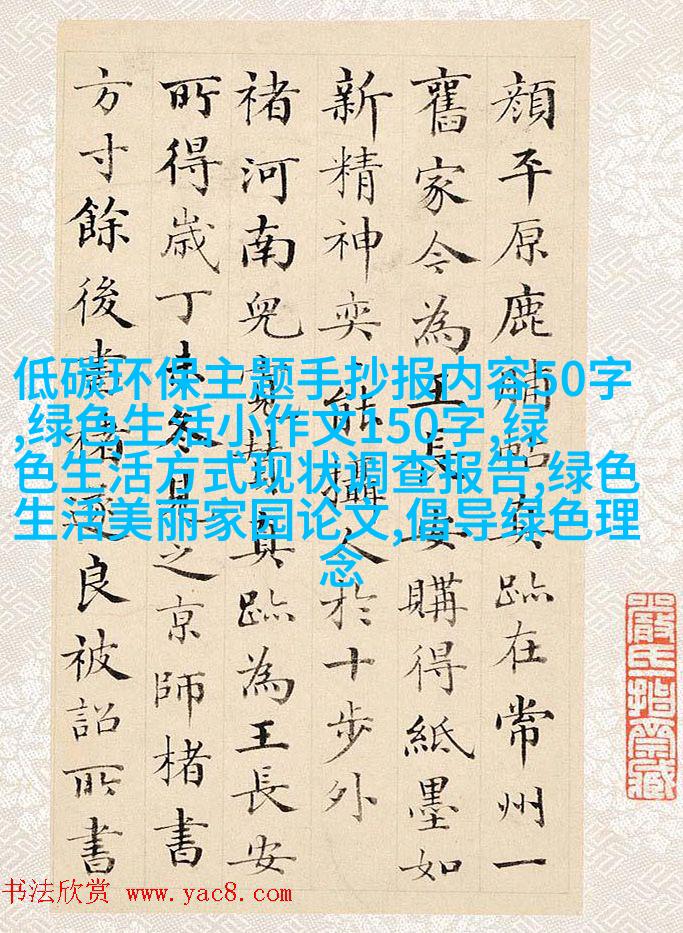 顔平原鹿脯帖真跡在常州一
舊家今為王長安購得紙墨如
新精神奕能攝人於十步外
褚河南兒寬贊真跡為王長安
所得歲丁未冬見之京師楮書
方寸餘後書褚遂良被詔所書
低碳环保主题手抄报内容50字
,绿色生活小作文150字,绿
色生活方式现状调查报告,绿色
生活美丽家园论文,倡导绿色理
念
书法欣赏 www.yac8.com